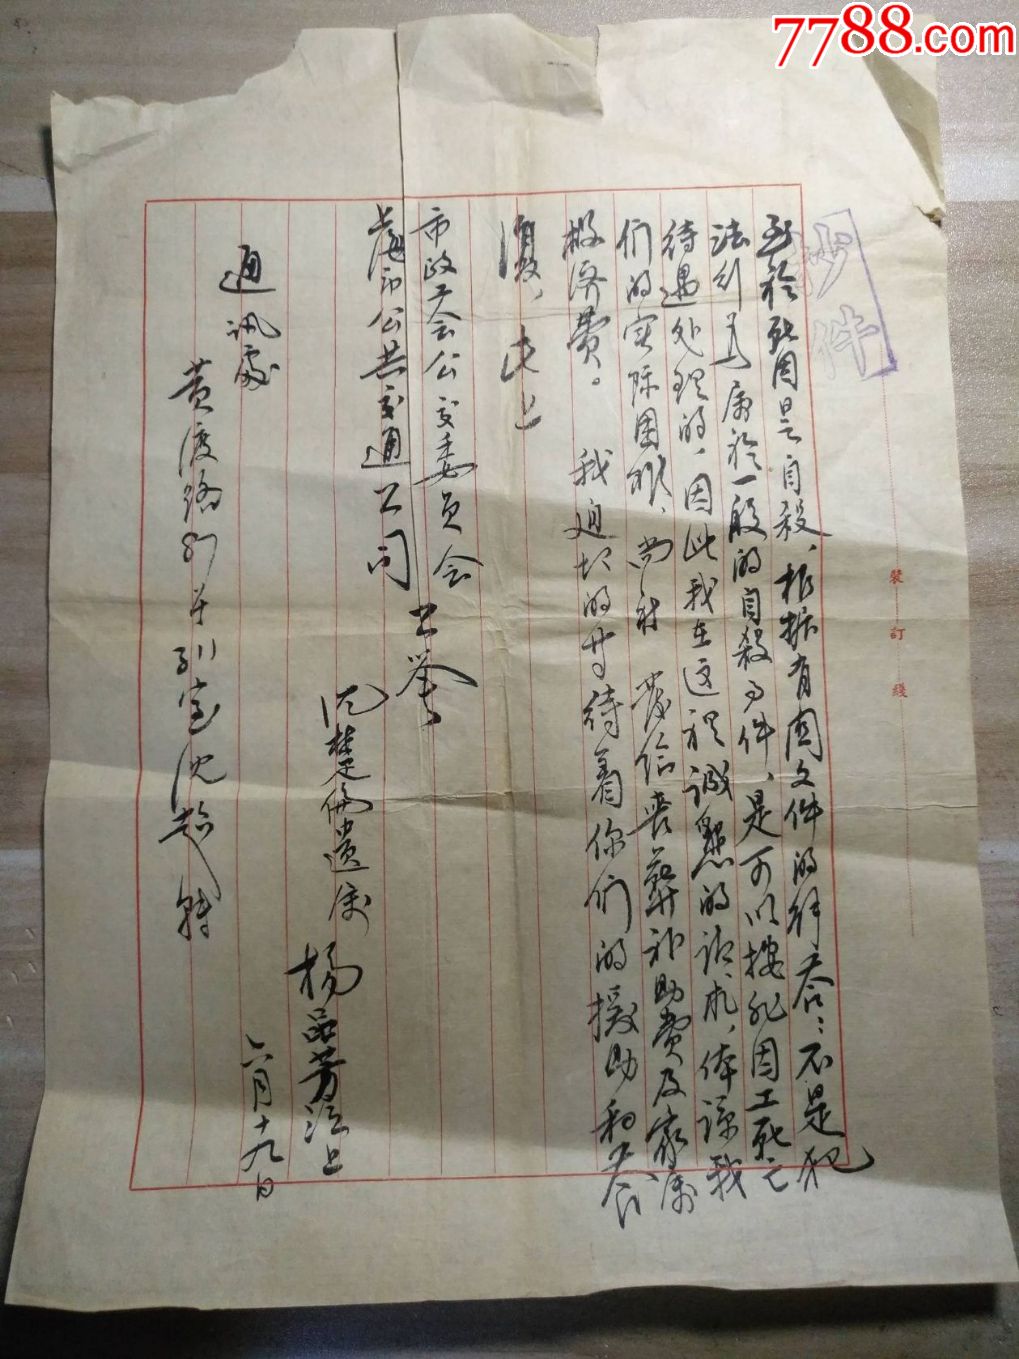 7788.com
抄件
至於死因是自殺，根据有関文件的解答：不是犯
法行为属於一般的自殺事件，是可以按非因工死亡
待遇处理的，因此我在这裡誠懇的请求，体谅我
们的实际困难，尚祈 發给丧葬补助费及家属
救济费。 我迫切的等待着你们的援助和答
復，
此上
市政工会公交委员会
上海市公共交通公司 公鉴
沈楚 遗属
楊品芳 上
六月十九日
通讯處
黄渡路 沈 轉
装訂綫